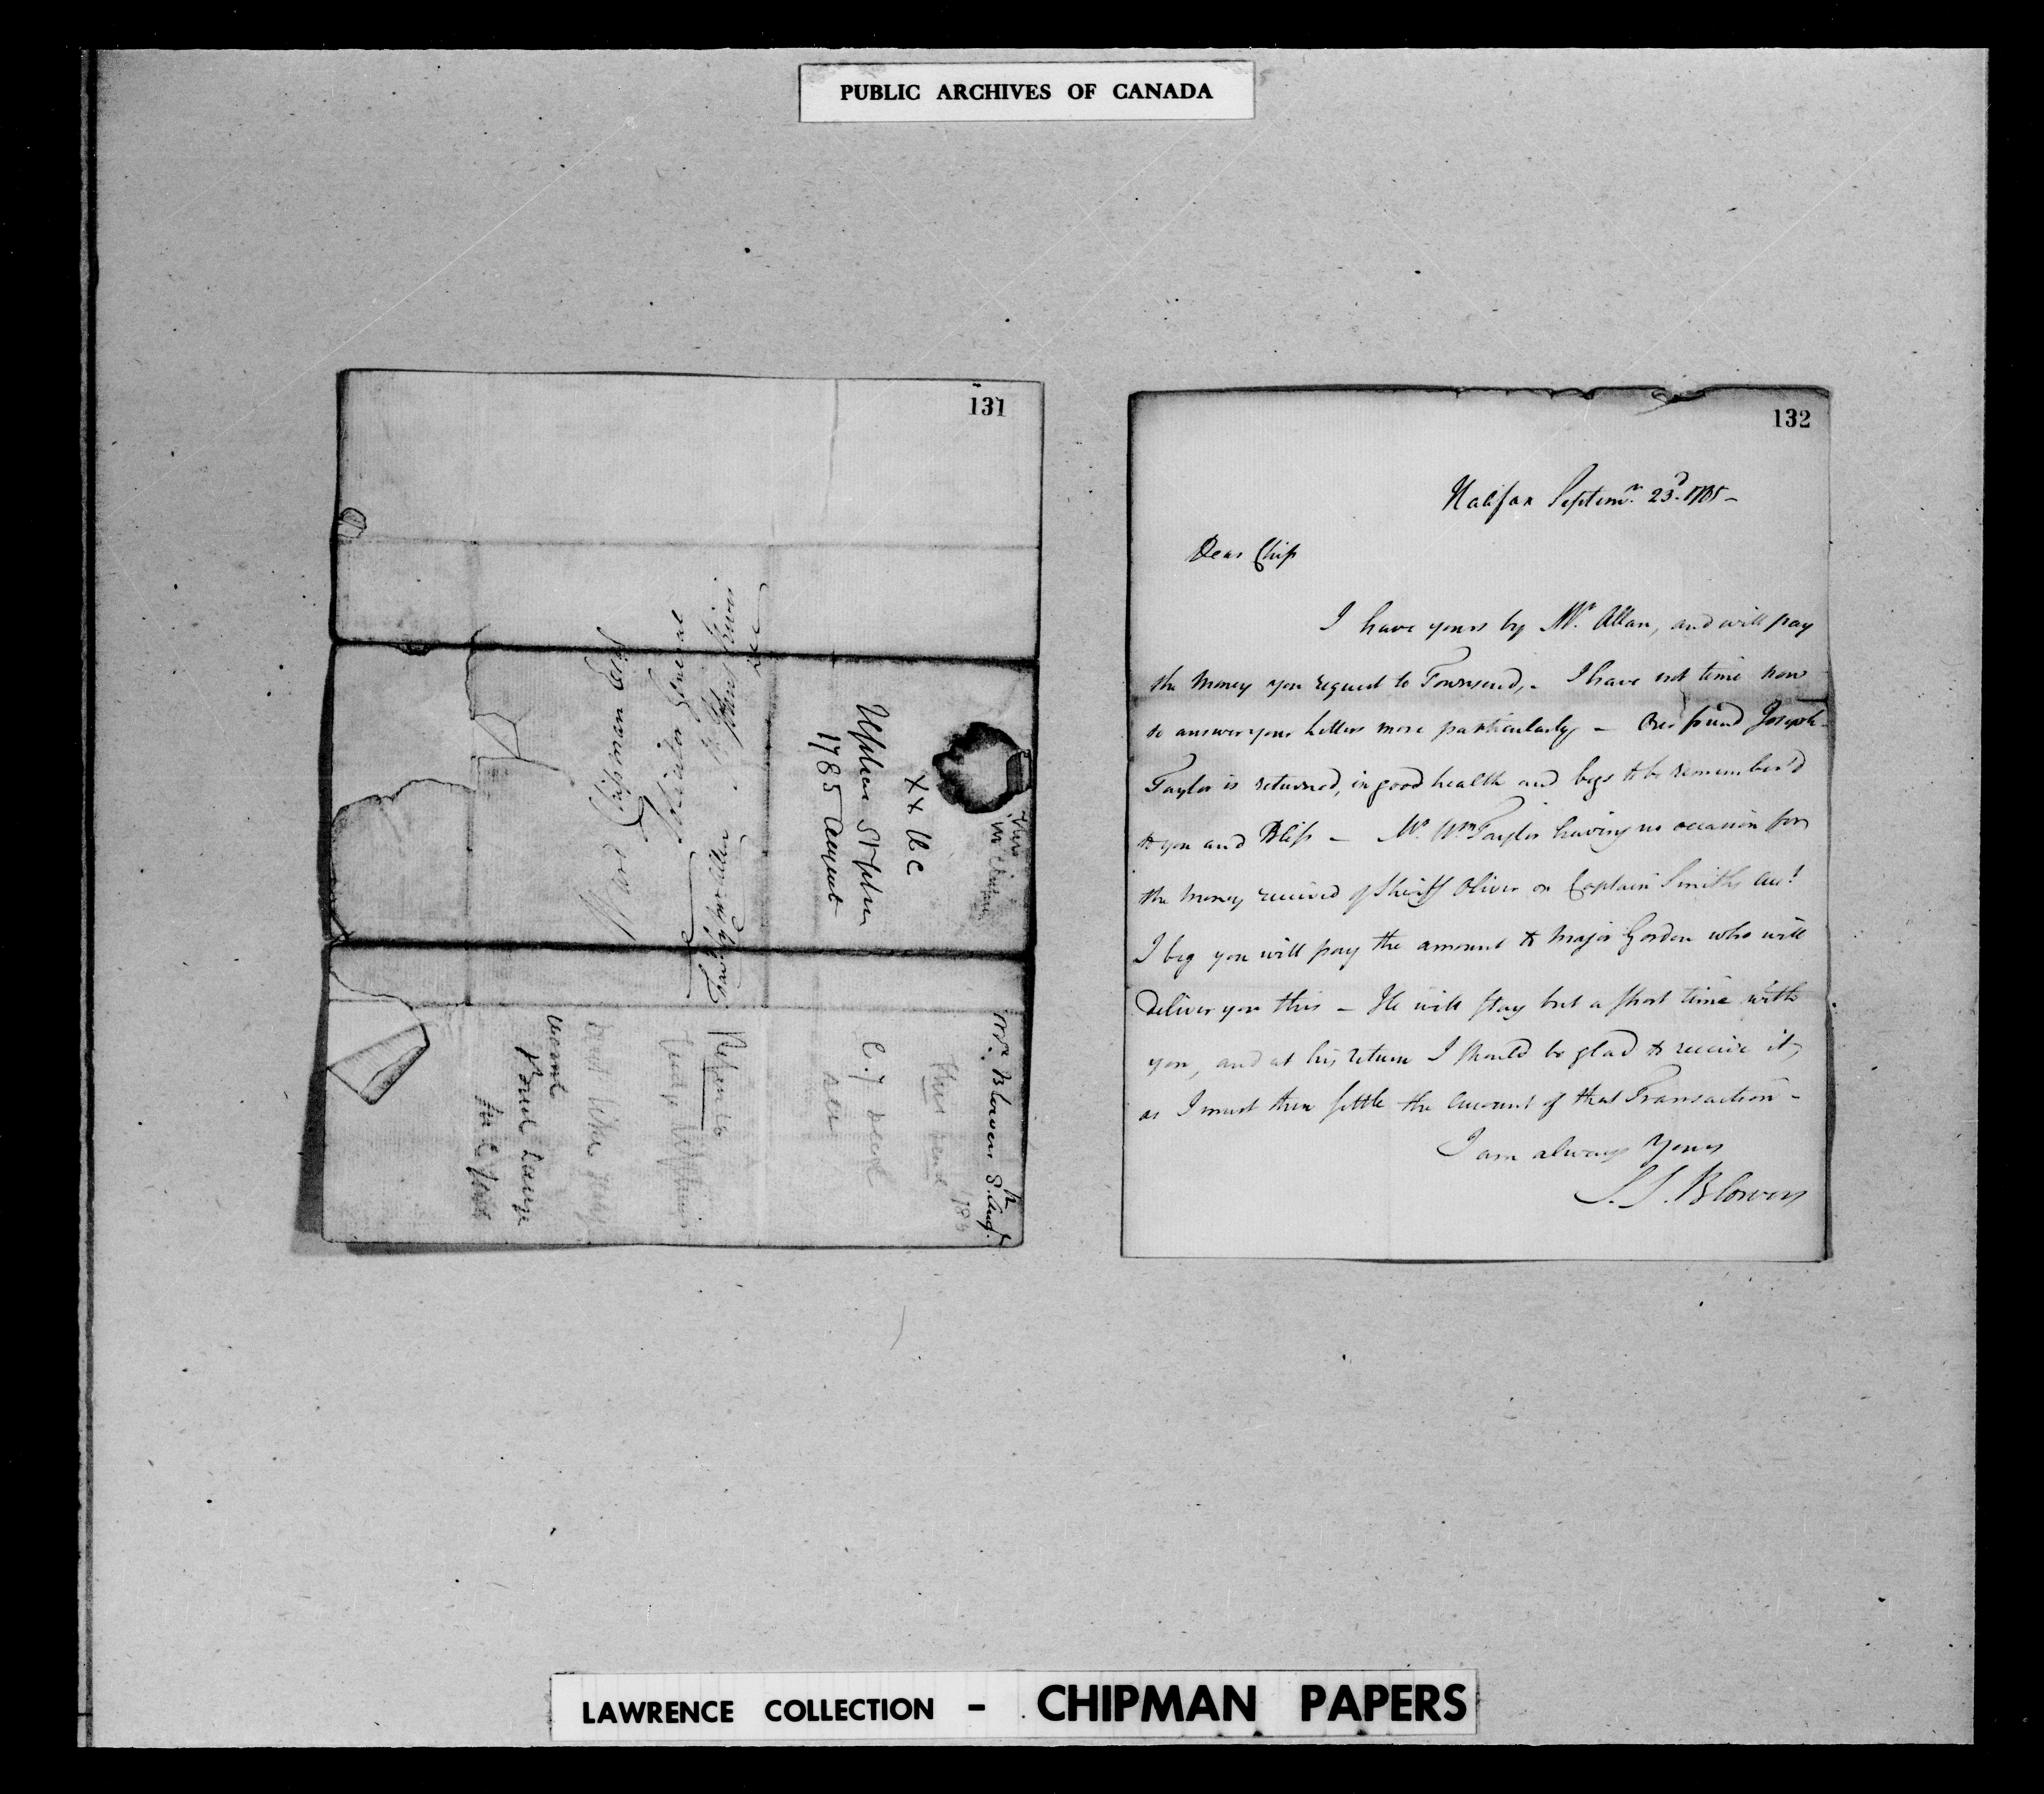 PUBLIC ARCHIVES OF CANADA
131
Ward Chipman Esqr
Solicitor General
St Johns River
&c
Favd by Mr Allen
Upham Stephen
1785 August
Mr. Blowers 8th Augt
132
Halifax Septemr. 23d. 1785 -
Dear Chip
I have yours by Mr. Allan, and will pay
the money you request to Townsend, - I have not time now
to answer your Letters more particularly - Our friend Joseph
Taylor is returned, in good health and begs to be remember'd
to you and Bliss - Mr. Wm Taylor having no occasion for
the money received of Sheriff Oliver on Captain Smiths acct.
I beg you will pay the amount to Major Gordon who will
deliver you this - He will stay but a short time with
you, and at his return I should be glad to receive it,
as I must then settle the account of that Transaction -
I am always Yours
S. S. Blowers
LAWRENCE COLLECTION - CHIPMAN PAPERS